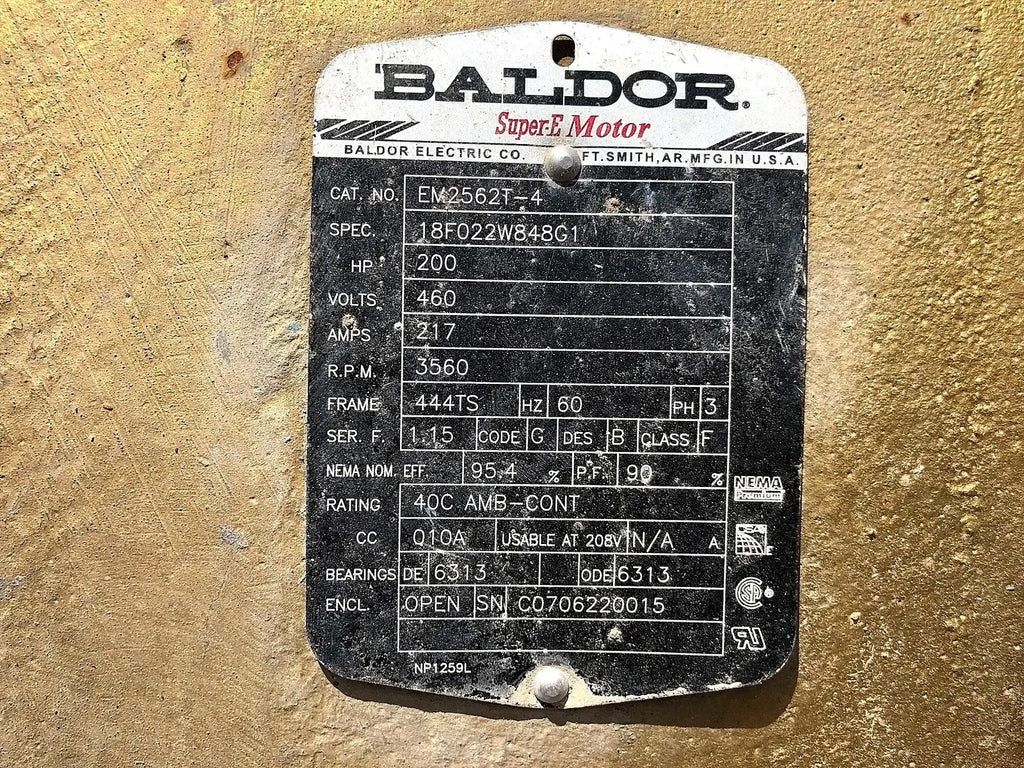 BALDOR®
Super-E Motor
BALDOR ELECTRIC CO. FT. SMITH, AR. MFG. IN U.S.A.
CAT. NO. EM2562T-4
SPEC. 18F022W848G1
HP 200
VOLTS 460
AMPS 217
R.P.M. 3560
FRAME 444TS HZ 60 PH 3
SER. F. 1.15 CODE G DES B CLASS F
NEMA NOM. EFF. 95.4 % P.F. 90 %
NEMA
Premium
RATING 40C AMB-CONT
CC 010A USABLE AT 208V N/A A
BEARINGS DE 6313 ODE 6313
ENCL. OPEN SN C0706220015
NP1259L